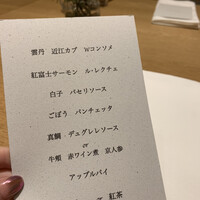 雲丹 近江カブ Wコンソメ
紅富士サーモン ル・レクチェ
白子 パセリソース
ごぼう パンチェッタ
真鯛 デュグレレソース
or
牛頬 赤ワイン煮 京人参
アップルパイ
紅茶